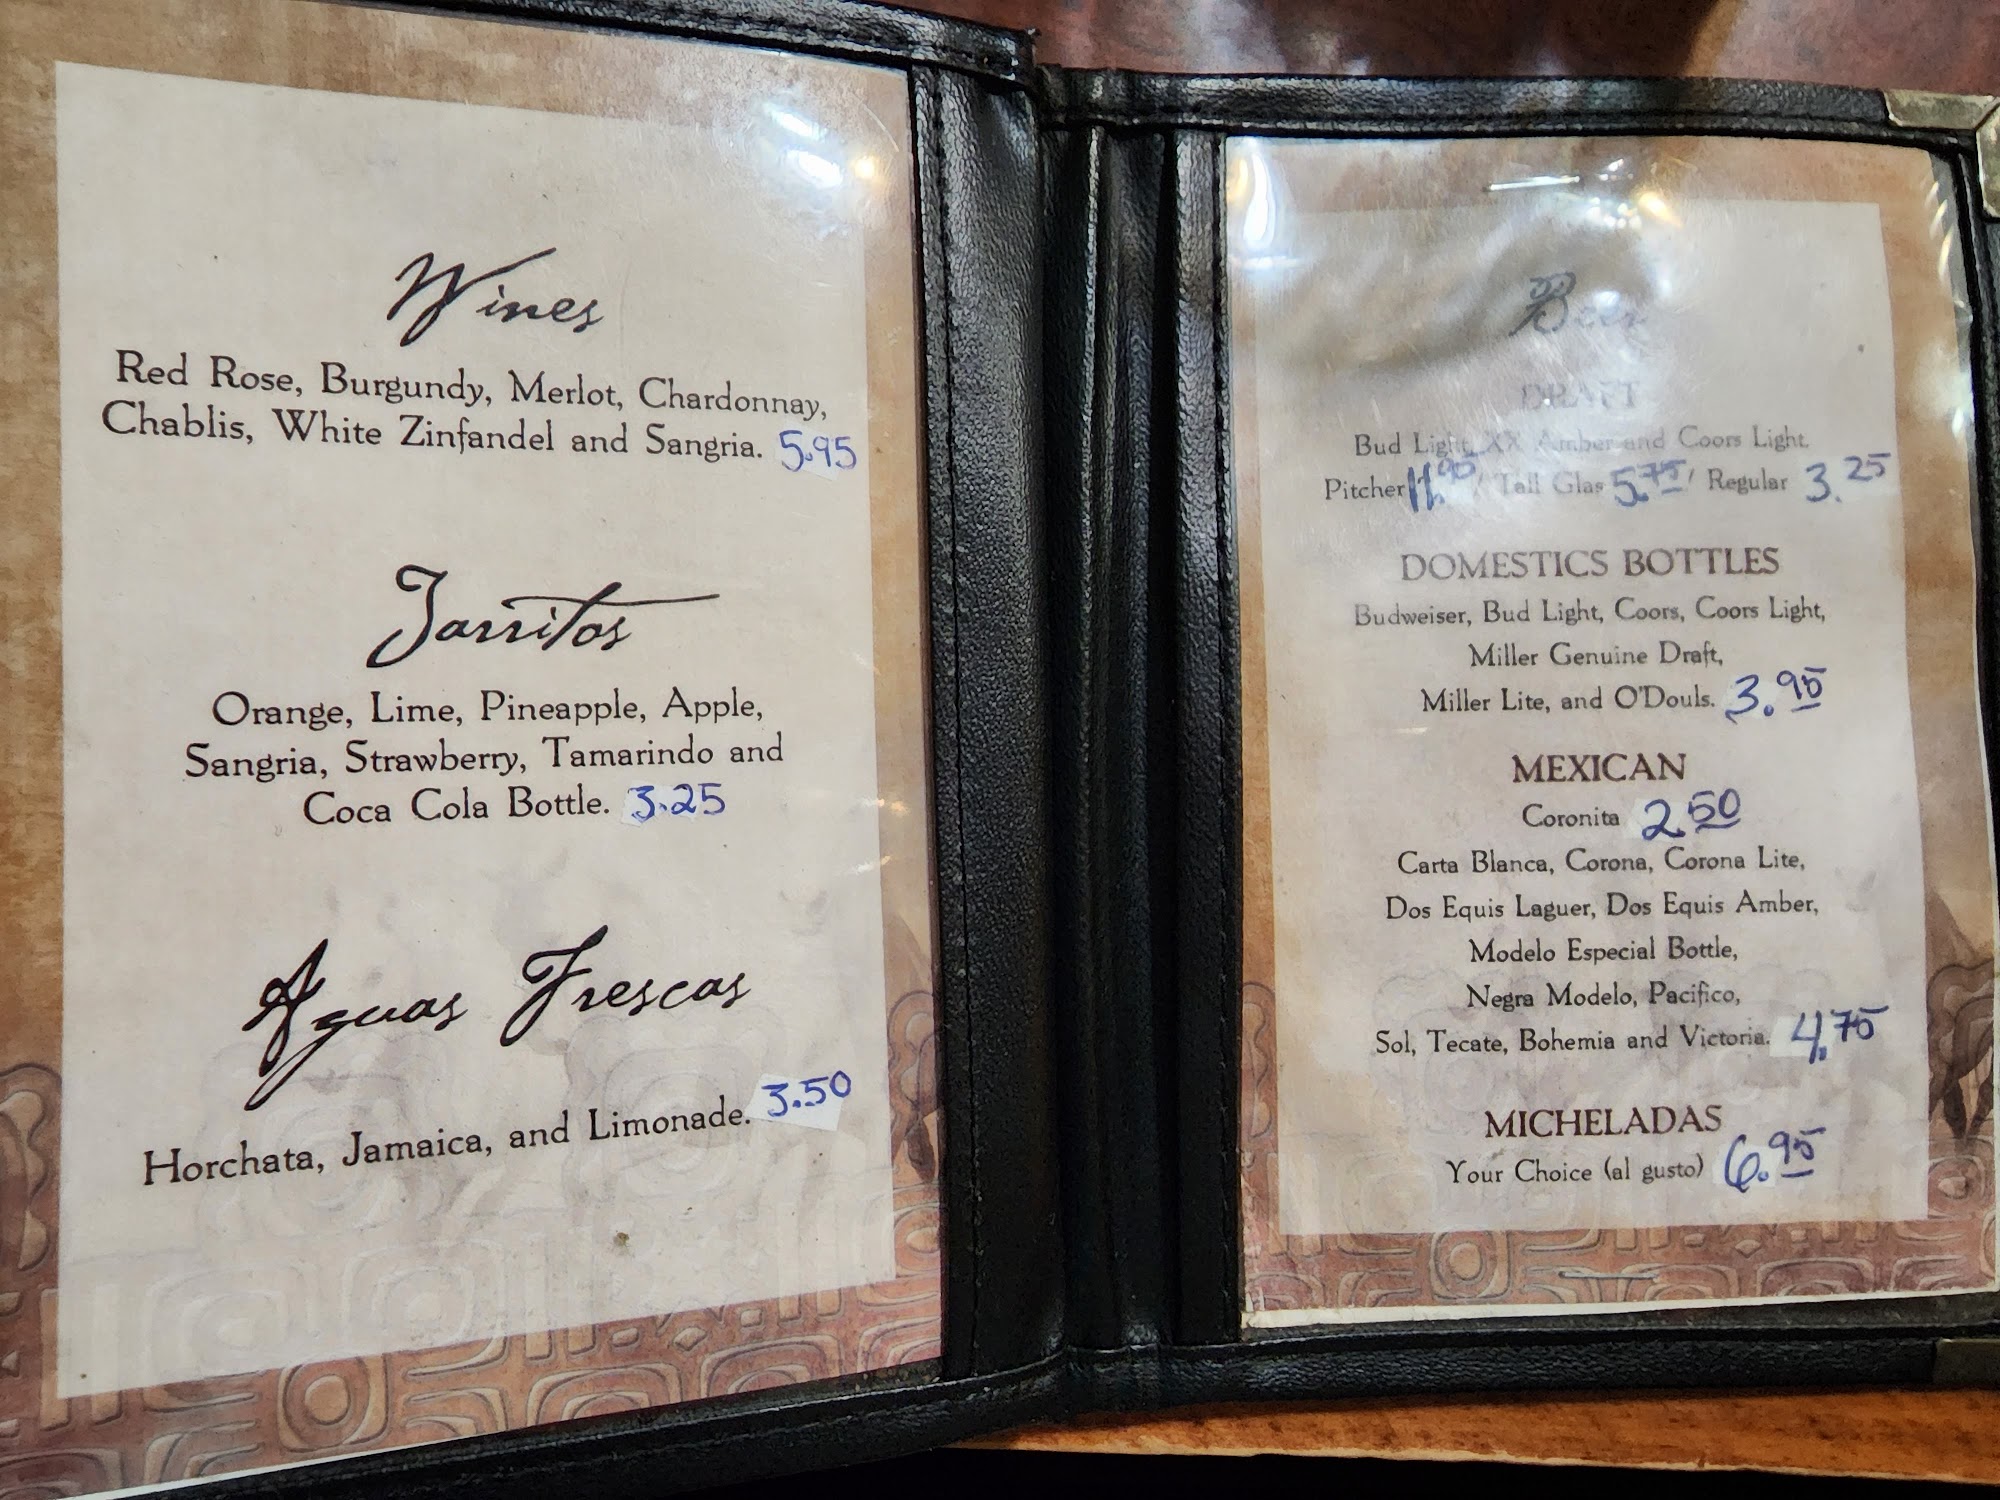 Wines
Red Rose, Burgundy, Merlot, Chardonnay,
Chablis, White Zinfandel and Sangria. 5.95
Jarritos
Orange, Lime, Pineapple, Apple,
Sangria, Strawberry, Tamarindo and
Coca Cola Bottle. 3.25
Aguas Frescas
Horchata, Jamaica, and Limonade. 3.50
Beer
DRAFT
Bud Light, XX Amber and Coors Light.
Pitcher 11.90 / Tall Glas 5.75 / Regular 3.25
DOMESTICS BOTTLES
Budweiser, Bud Light, Coors, Coors Light,
Miller Genuine Draft,
Miller Lite, and O'Douls. 3.95
MEXICAN
Coronita 2.50
Carta Blanca, Corona, Corona Lite,
Dos Equis Laguer, Dos Equis Amber,
Modelo Especial Bottle,
Negra Modelo, Pacifico,
Sol, Tecate, Bohemia and Victoria. 4.75
MICHELADAS
Your Choice (al gusto) 6.95